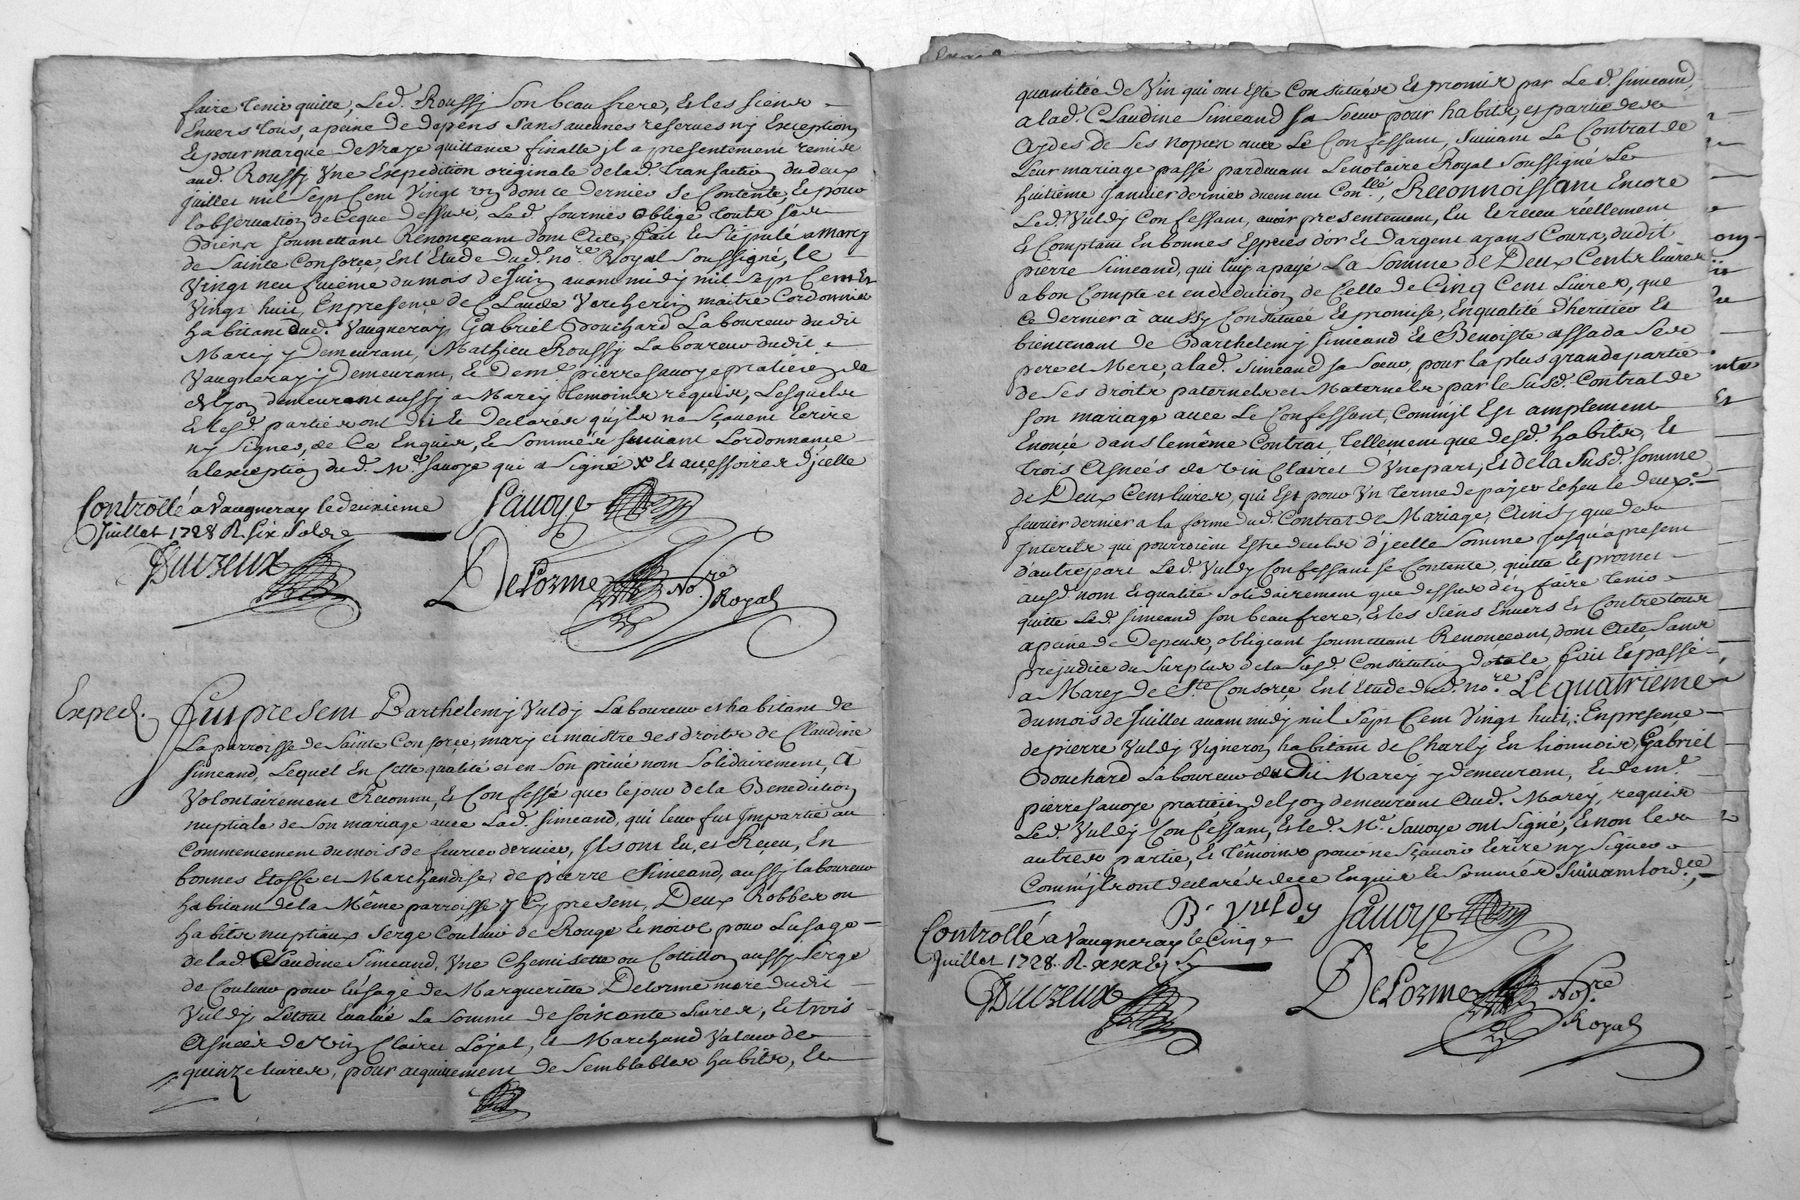 faire tenir quitte, Led. Roussy son beau frere, et les siens
Envers tous, a peine de depens sans aucunes reserves ny Exception
Et pour marque de vraye quittance finalle il a presentement remis
aud. Roussy une Expedition originale de lad. transaction du deux
juillet mil sept Cent Vingt dont ce dernier se Contente, Et pour
lobservation de ce que dessus, Led. fournier oblige touts ses
Biens soumettant Renonçeant dont Acte, fait et stipulé a Marcy
de Sainte Consorçe, Ent Etude dud. no.re Royal soussigné, le
Vingt neufvieme du mois de Juin avant midy mil sept Cent
Vingt huit, En presençe de Claude Vercherin maitre Cordonnier
habitant dud. Vaugneray, Gabriel Bouchard Laboureur dudit
Marcy y demeurant, Mathieu Roussy Laboureur dudit
Vaugneray y Demeurant, Et Dem.e pierre Savoye praticien de
Lyon demeurant aussy a Marcy temoins requis, Lesquels
Et lesd. parties ont dit et declarés qu'ils ne sçavent Ecrire
ny signer, de Ce Enquis, Et sommés suivant Lordonnance
a lexception dud. M.e Savoye qui a signé x Et accessoires d'jcelle
Controllé a Vaugneray le deuxieme
Juillet 1728 R. six Solds
Savoye
Duizeux
DeLorme No.re
Royal
Exped.
fut present Barthelemy Vuldy Laboureur et habitant de
La parroisse de Sainte Consorçe, mary et maistre des droits de Claudine
Simeand, Lequel En Cette qualité et en son privé nom solidairement, A
Volontairement Reconnu, Et Confessé que le jour de la Benediction
nuptiale de son mariage avec Lad. Simeand, qui leur fut Impartie au
Commencement du mois de fevrier dernier, Ils ont Eu, et Reçeu, En
bonnes Etoffe et Marchandise, de pierre Simeand, aussy laboureur
habitant de la Même parroisse y Cy present, Deux Robbes ou
habits nuptiaux Serge Couleur de Rouge Et noire pour Lusage
de lad. Claudine Simeand, Une Chemisette ou Cottillon aussy Serge
de Couleur pour lusage de Margueritte Delorme mere dudit
Vuldy Letout Evalué La Somme de soixante Livres, Et trois
Asnées de vin Clairet Loyal, et Marchand Valeur de
quinze livres, pour acquitement de Semblables habits, Et
quantitée de Vin qui ont Esté Constitués Et promis par Le d. Simeand,
a lad. Claudine Simeand sa Soeur pour habits, et partie des
Aydes de Ses nopces avec Le Confessant, suivant Le Contrat de
Leur mariage passé pardevant Le notaire Royal soussigné Le
huitième Janvier dernier duement Con.llé, Reconnoissant Encore
Led. Vuldy Confessant, avoir presentement, Eu Et receu réellement
Et Comptant En bonnes Especes d'or Et Dargent ayans Cours, dudit
pierre Simeand, qui luy a payé La Somme de Deux Cents livres
a bon Compte et en deduction de Celle de Cinq Cent Livres, que
Ce dernier à aussy Constituée Et promise, En qualité d'heritier Et
bientenant de Barthelemy Simeand Et Benoiste assada Ses
pere et Mere, a lad. Simeand sa Soeur, pour la plus grande partie
de Ses droits paternels et Maternels par le Susd. Contrat de
Son mariage avec Le Confessant, Comm'jl Est amplement
Enonçé dans le même Contrat, Tellement que desd. habits, Et
Trois Asnées de vin Clairet d'une part, Et de la Susd. Somme
de Deux Cent livres, qui Est pour Un terme de payer Echeu le deux.e
fevrier dernier a la forme dud. Contrat de Mariage, Ainsy que des
Interets qui pourroient Estre deubs d'jcelle Somme Jusqu'à present
d'autre part Le d. Vuldy Confessant se Contente, quitte Et promet
ausd. nom Et qualité solidairement que dessus d'en faire tenir
quitte Led. Simeand son beau frere, Et les siens Envers Et Contre tous
a peine de Depens, obligeant soumettant Renonçeant, dont Acte, Sans
prejudice du Surplus de la Susd. Constitution dotale, fait Et passé
a Marcy de S.te Consorçe, Ent Etude dud. no.re Le quatrieme
du mois de Juillet avant midy mil sept Cent Vingt huit, En presence
de pierre Vuldy Vigneron habitant de Charly En Lionnois, Gabriel
Bouchard Laboureur dudit Marcy y demeurant, Et dem.e
pierre Savoye praticien de Lyon demeurant Aud. Marcy, requis
Led. Vuldy Confessant, Et led. M.e Savoye ont Signé, Et non les
autres partie, Et Têmoins pour ne Sçavoir Ecrire ny Signer
Comm'jls ont declarés de ce Enquis Et Sommés Suivant lord.ce
B. vuldy
Savoye
Controllé a Vaugneray le Cinq
Juillet 1728. R.
Duizeux
DeLorme No.re
Royal